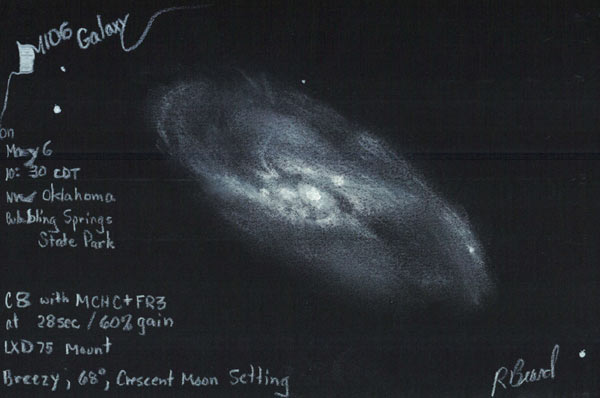 M106 Galaxy
on
May 6
10:30 CDT
NW Oklahoma
Bubbling Springs
State Park
C8 with MCHC+FR3
at 28sec / 60% gain
LXD75 Mount
Breezy, 68°, Crescent Moon Setting
R Beard